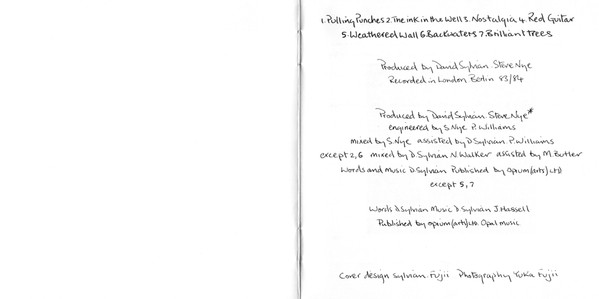 1. Pulling Punches 2. The ink in the Well 3. Nostalgia 4. Red Guitar
5. Weathered Wall 6. Backwaters 7. Brilliant Trees
Produced by David Sylvian Steve Nye
Recorded in London Berlin 83/84
Produced by David Sylvian. Steve Nye*
engineered by S. Nye P. Williams
mixed by S. Nye assisted by D Sylvian P. Williams
except 2,6 mixed by D. Sylvian N. Walker assisted by M. Butler
Words and Music D Sylvian Published by opium (arts) Ltd
except 5, 7
Words D Sylvian Music D Sylvian J. Hassell
Published by opium (arts) Ltd. Opal music
Cover design Sylvian. Fujii Photography Yuka Fujii